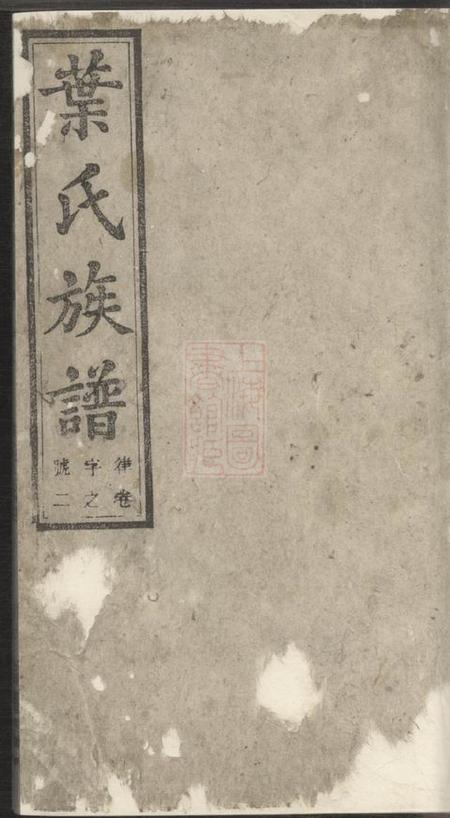 葉氏族譜
律字號
卷之二
上海圖書館藏